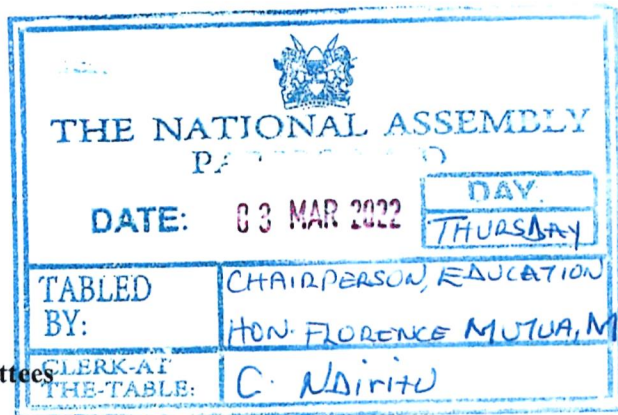 THE NATIONAL ASSEMBLY
DATE: 03 MAR 2022
DAY
THURSDAY
TABLED BY:
CHAIRPERSON, EDUCATION
HON. FLORENCE MUTUA, M
ttees
CLERK-AT THE-TABLE:
C. Ndiritu